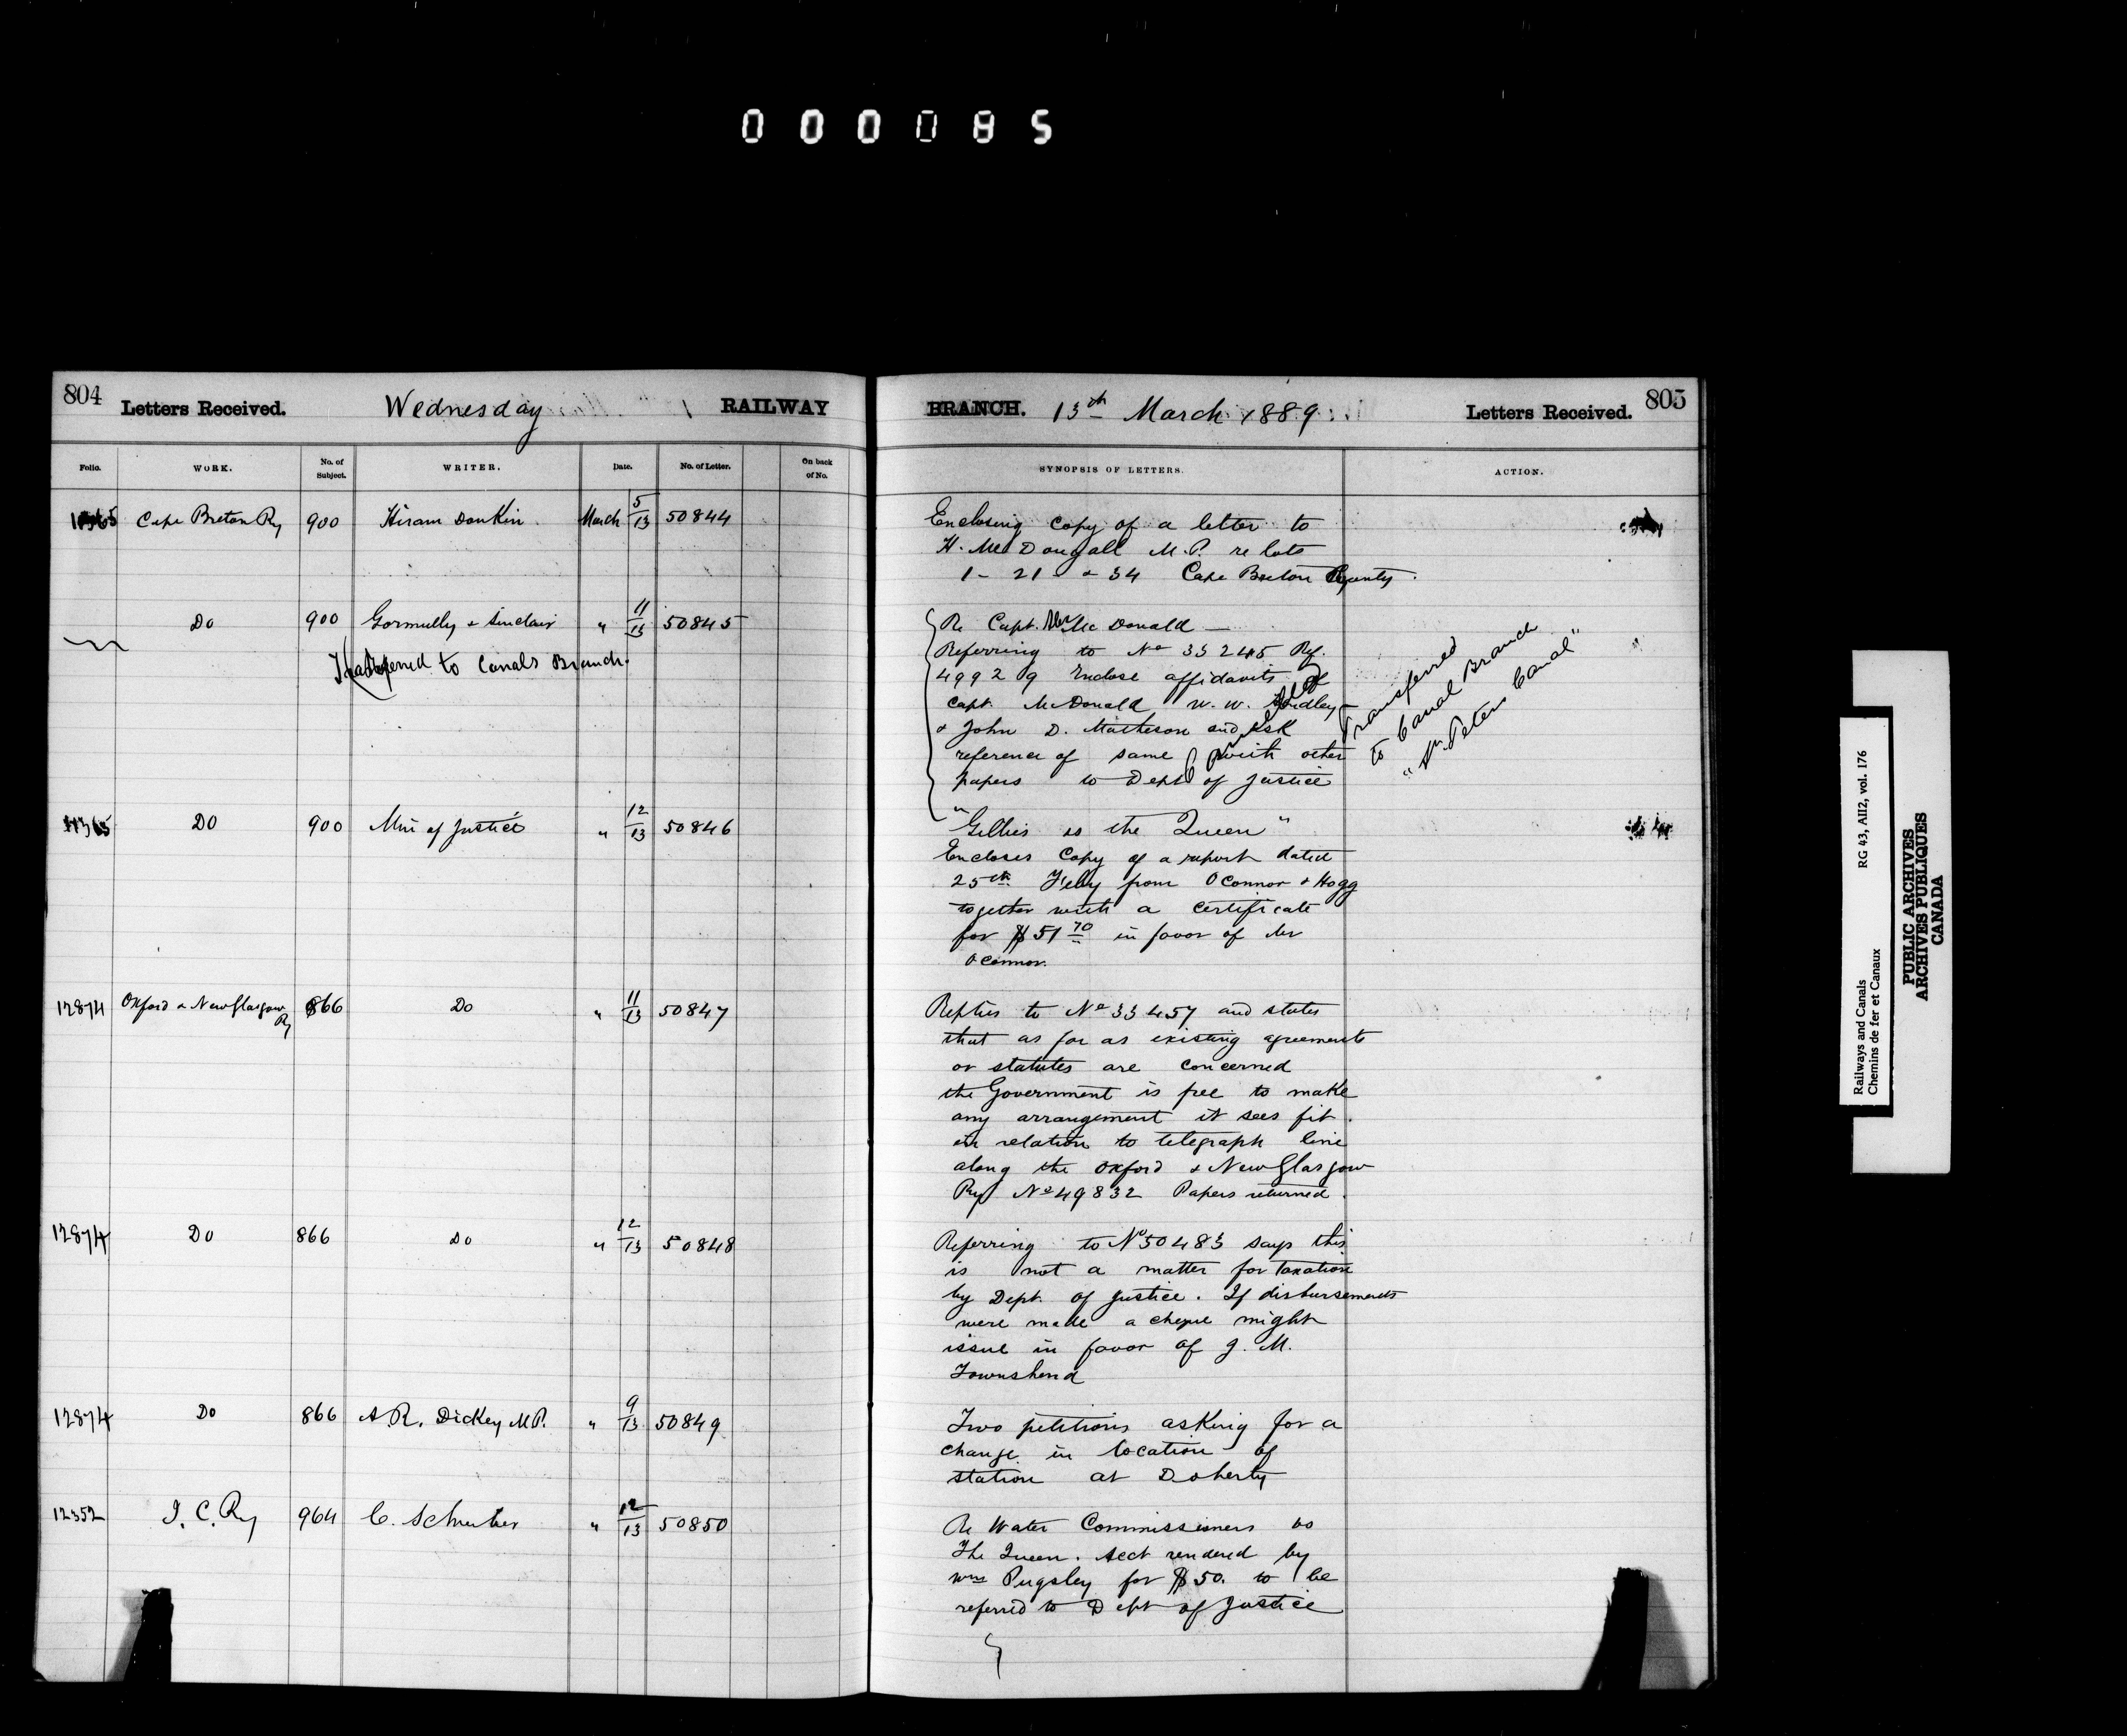 000085
804 Letters Received. Wednesday RAILWAY
Folio. WORK. No. of Subject. WRITER. Date. No. of Letter. On back of No.
Cape Breton Ry 900 Hiram Donkin March 5/13 50844
Do 900 Gormully & Sinclair " 11/13 50845
Transferred to Canals Branch.
Do 900 Min of Justice " 12/13 50846
12874 Oxford & New Glasgow Ry 866 Do " 11/13 50847
12874 Do 866 Do " 12/13 50848
12874 Do 866 A. R. Dickey M.P. " 9/13 50849
12352 I. C. Ry 964 C. Schreiber " 12/13 50850
BRANCH. 13th March 1889 Letters Received. 805
SYNOPSIS OF LETTERS. ACTION.
Enclosing copy of a letter to
H. McDougall M.P. re lots
1 - 21 - & 34 Cape Breton County.
Re Capt. McDonald —
Referring to No 33245 Ref.
49929 Enclose affidavits of
Capt. McDonald W. W.
& John D. Matheson and ask
reference of same with other
papers to Dept of Justice
Transferred
to Canal Branch
"St. Peters Canal"
"Gillies vs the Queen"
Encloses Copy of a report dated
25th Feby from OConnor & Hogg
together with a certificate
for $51 70 in favor of Mr
OConnor.
Replies to No 33457 and states
that as far as existing agreements
or statutes are concerned
the Government is free to make
any arrangement it sees fit
in relation to telegraph line
along the Oxford & New Glasgow
Ry No 49832 Papers returned.
Referring to No 50483 says this
is not a matter for taxation
by Dept. of Justice. If disbursements
were made a cheque might
issue in favor of J. M.
Townshend
Two petitions asking for a
change in location of
station at Doherty
Re Water Commissioners vs
The Queen. Acct rendered by
Wm Pugsley for $50. to be
referred to Dept of Justice
Railways and Canals RG 43, AII2, vol. 176
Chemins de fer et Canaux
PUBLIC ARCHIVES
ARCHIVES PUBLIQUES
CANADA